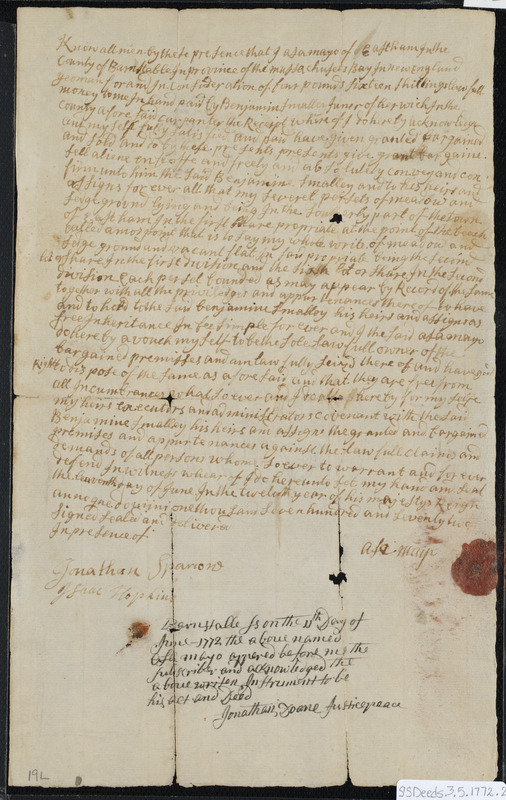 Know all men by these presence that I asa mayo of Eastham In the
County of Barnstable In province of the massachusets Bay In new England
yeoman for and In Consideration of four pounds sixteen shillings Lawfull
money to me In hand paid by Benjamin Smalley Juner of harwich In the
county afore said the Receipt whereof I do hereby acknowlige
and my self fully satisfied and paid have given granted bargained
and sold and do by these presents presents give grant bargaine
sell aliene enfeoffe and freely and absolutely convey and con
firm unto him the said Benjamine Smalley and to his heirs and
assigns for ever all that my severel persels of meadow and
Sedge ground lying and being In the Southerly part of the town
of Eastham In the first share propriate at the point of the beach
called amos point that is to say my whole write of meadow and
Sedge ground and vacant flat in said propriate being the second
Lot or share In the first division and the Lot or share In the second
division Each persel bounded as may appear by Record of the same
together with all the priviledges and appurtenances thereof to have
and to hold to the said Benjamine Smalley his heirs and assigns as
free Inheritance In fee simple for ever and I the said asa mayo
do hereby avouch my self to be the sole Lawfull owner of the
bargained premisses and am lawfully seized thereof and have in
Right to dispose of the same as afore said and that they are free from
all Incumbrances what soever and I do hereby for my selfe
my heirs executors and administrators covenant with the said
Benjamine Smalley his heirs and assigns the granted and bargained
premises and appurtenances against the Lawfull claims and
demands of all persons whome soever to warrant and for ever
defend In witness whearof I doe hereunto set my hand and seal
the Eleventh day of June In the twelveth year of his majestys Reign
annoque domini one thousand seven hundred and seventy two
Signed sealed and delivered
In presence of
Asa Mayo
Jonathan Sparrow
Isaac Hopkins
Barnstable Ss on the 11th Day of
June 1772 the above named
asa mayo appered before me the
subscriber and acknowledged the
above written Instrument to be
his act and Deed
Jonathan Doane Justice peace
19L
SSDeeds.3.5.1772.2